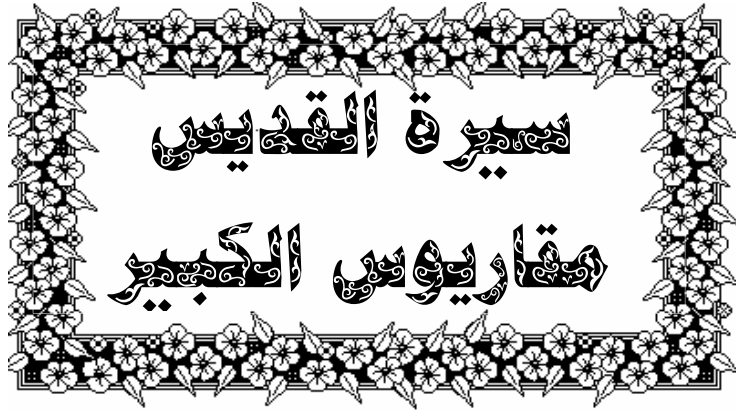 سيرة القديس
مقاريوس الكبير